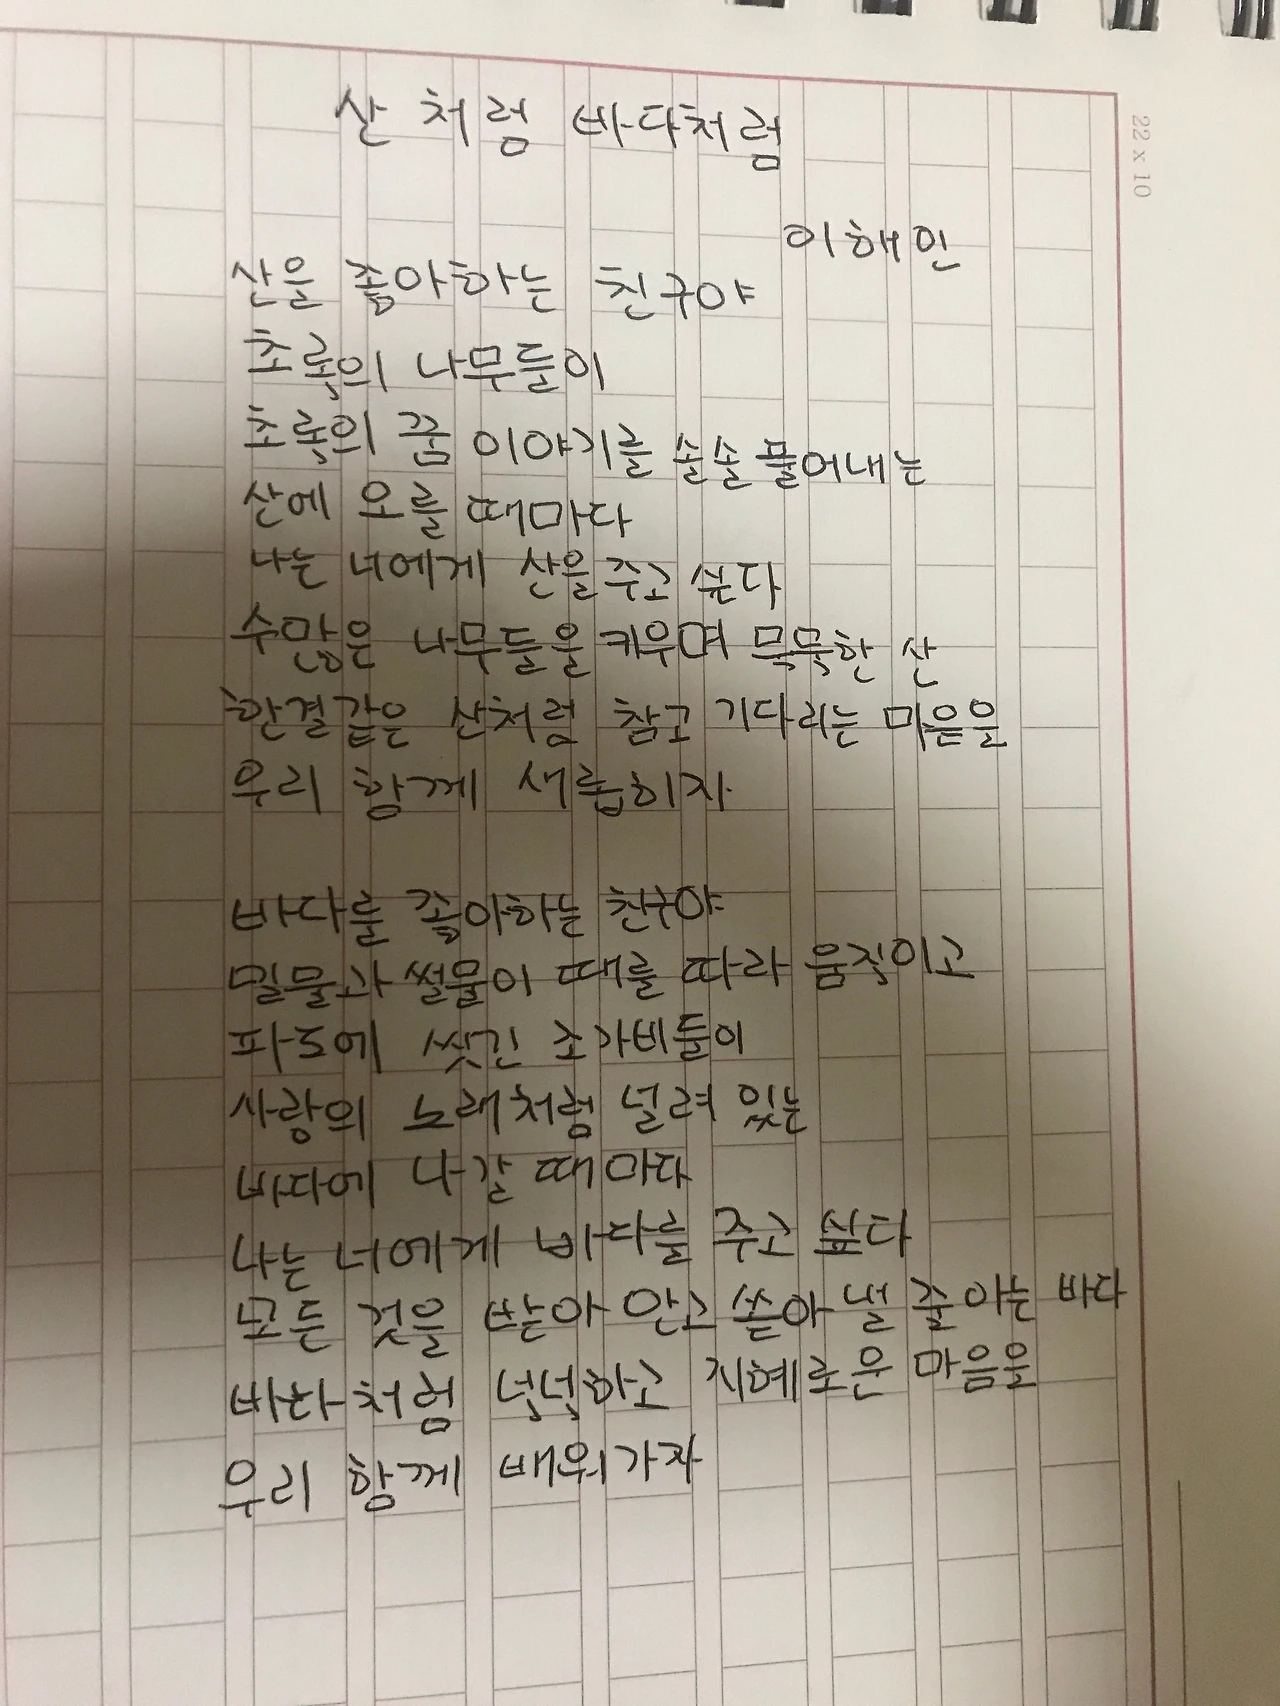 산처럼 바다처럼
22 x 10
이해인
산을 좋아하는 친구야
초록의 나무들이
초록의 꿈 이야기를 솔솔 풀어내는
산에 오를 때마다
나는 너에게 산을 주고 싶다
수많은 나무들을 키우며 묵묵한 산
한결같은 산처럼 참고 기다리는 마음을
우리 함께 새롭히자
바다를 좋아하는 친구야
밀물과 썰물이 때를 따라 움직이고
파도에 씻긴 조가비들이
사랑의 노래처럼 널려 있는
바다에 나갈 때마다
나는 너에게 바다를 주고 싶다
모든 것을 받아 안고 쏟아 낼 줄 아는 바다
바다처럼 넓넓하고 지혜로운 마음을
우리 함께 배워가자